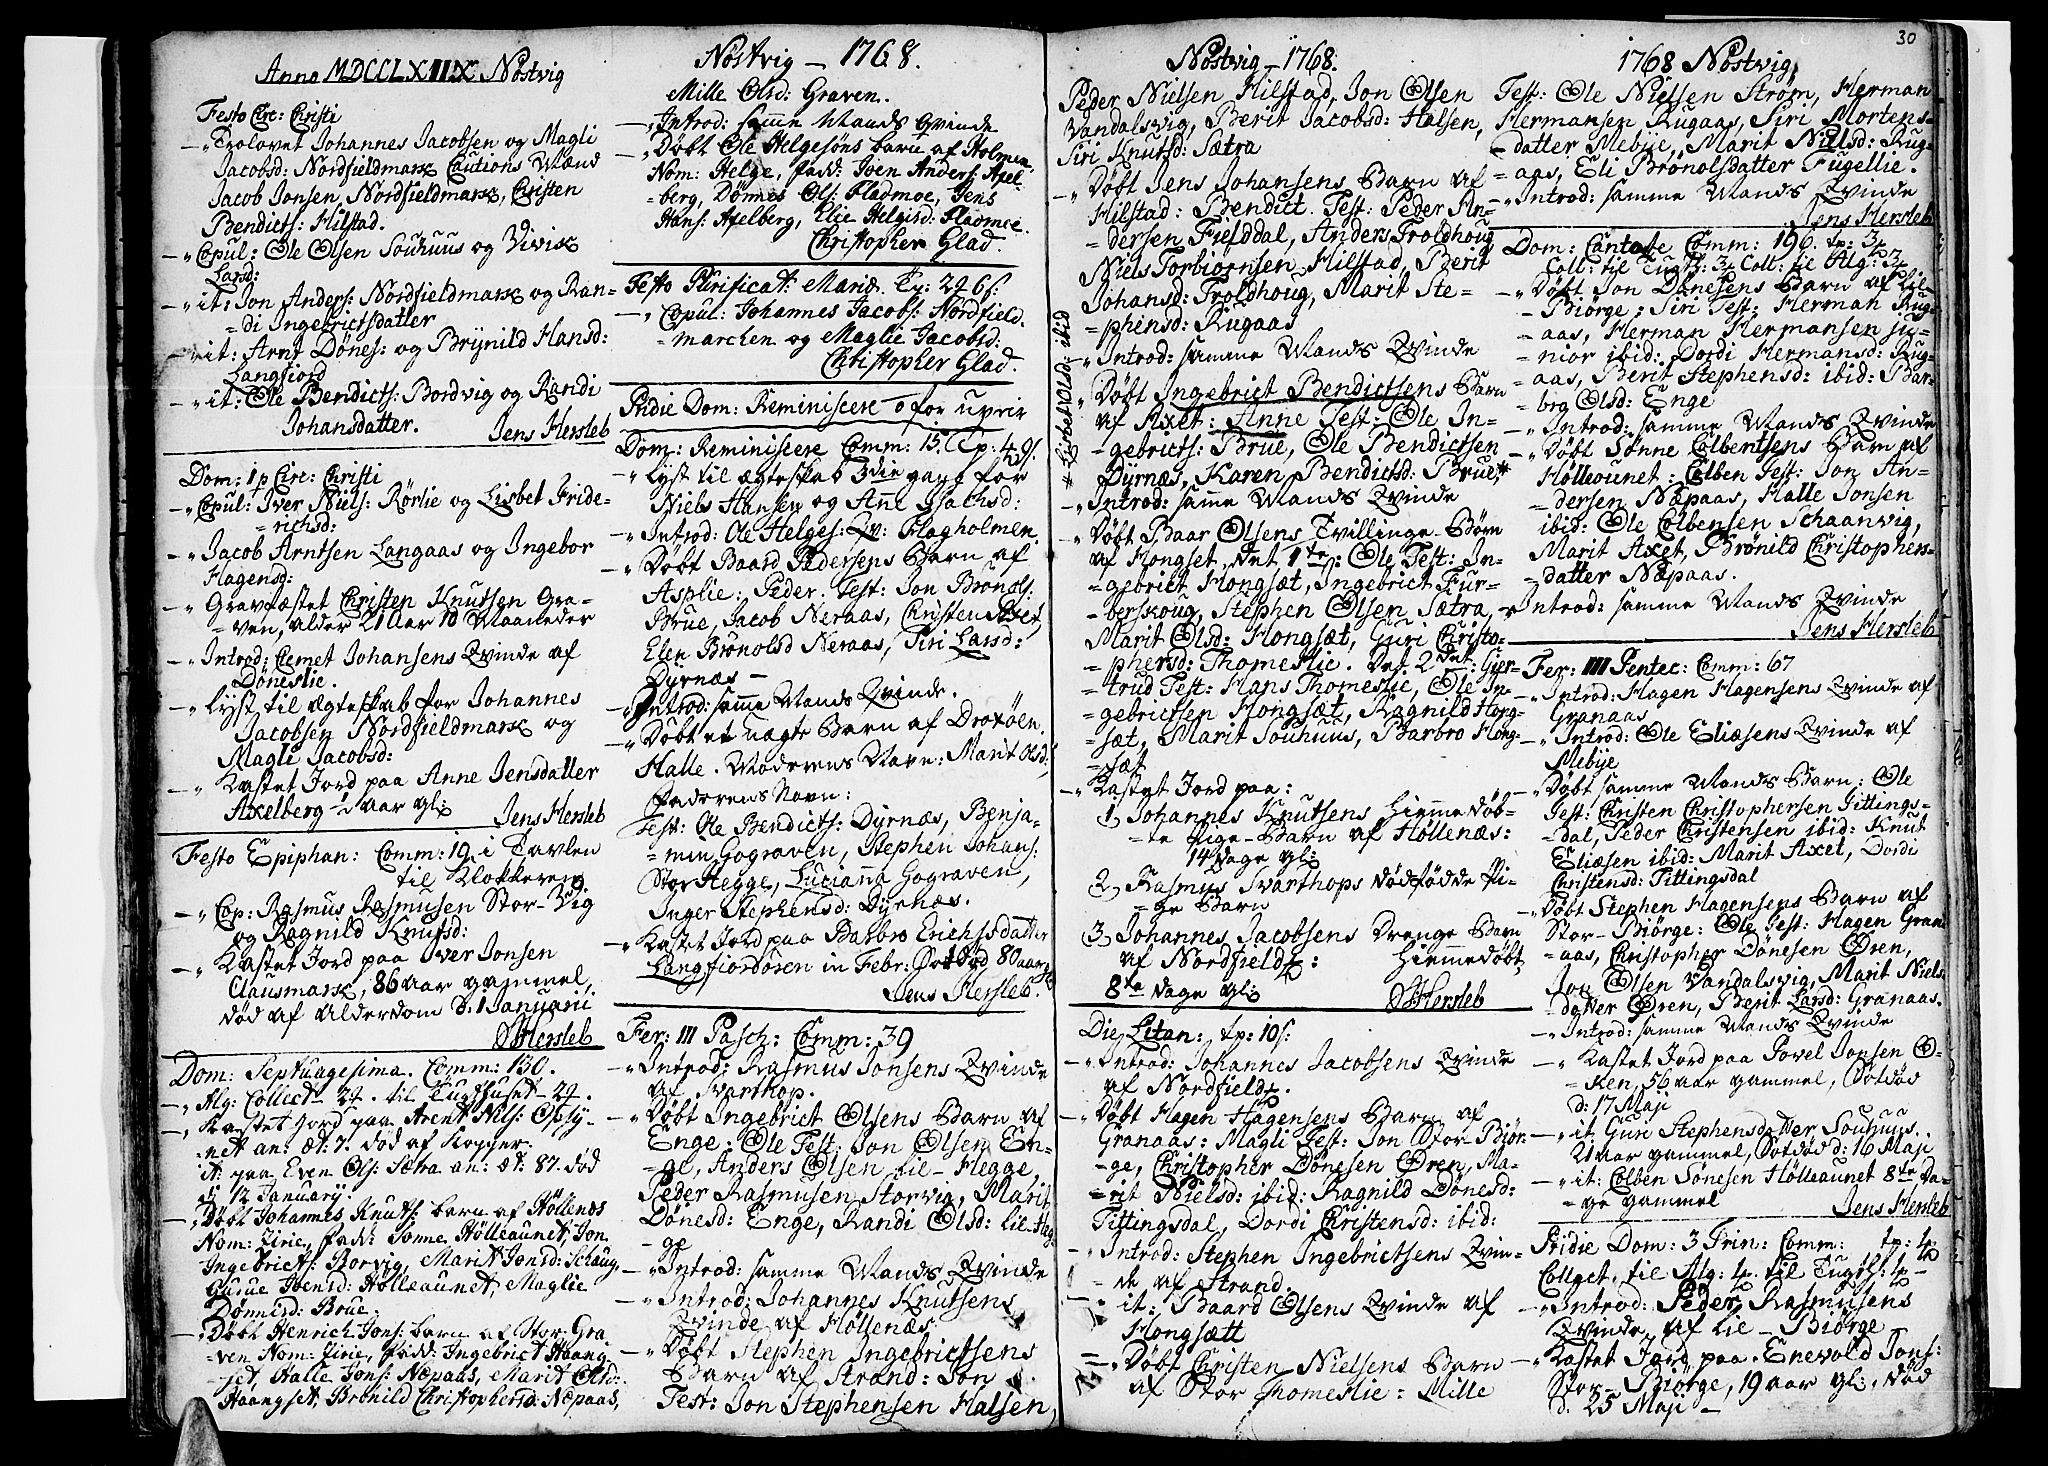 Anno MDCCLXIIX Nöstvig
Festo Circ: Christi
-„ Trolovet Johannes Jacobsen og Magli
Jacobsd: Nordfieldmark Cautions Mænd
Jacob Jonsen, Nordfieldmark, Christen
Bendicts: Hilstad.
-„ Copul: Ole Olsen Souhuus og Vivik
Larsd:
-„ it: Jon Anders: Nordfieldmark og Ran-
=di Ingebrictsdatter
-„ it: Arnt Dönes: og Brÿnild Hansd:
Langfiord
-„ it: Ole Bendicts: Bordvig og Randi
Johansdatter. Jens Hersleb
Dom: 1 p Circ: Christi
-„ Copul: Iver Niels: Rörlie og Lisbet Fride-
=richsd:
-„ Jacob Arntsen Langaas og Ingebor
Hagensd:
-„ Gravfæstet Christen Knutsen Gra-
=ven, alder 21 aar 10 Maaneder
-„ Introd: Clemet Johansens Qvinde af
Döneslie.
-„ Lyst til ægteskab for Johannes
Jacobsen Nordfieldmark og
Magli Jacobsd:
-„ Kastet Jord paa Anne Jensdatter
Axelberg ½ aar gl: Jens Hersleb
Festo Epiphan: Comm: 19 i Tavlen
til Klokkeren
-„ Cop: Rasmus Rasmusen Stor-Vig
og Ragnild Knutsd:
-„ Kastet Jord paa Iver Jonsen
Clausmark, 86 aar gammel,
död af Alderdom d: 1 Januarii
Hersleb
Dom: Septuagesima. Comm: 130.
-„ Alg: Collect 24. til Tugthuset 24.
-„ Kastet jord paa Arent Nils: Opsÿ-
=net an: æt: 7. död af Kopper.
it: paa Even Ols: Sætra an: æt: 87. död
d: 12 January.
-„ Döbt Johannes Knuts: barn af Höllenæs
Nom: Zirie, fadd: Sonne Hölleaunet, Jon
Ingebrict: Borvig, Marit Jonsd: Schaug,
Gurue Joensd: Hölleaunet, Maglie
Dönnesd: Brue.
-„ Döbt Henrich Jons: barn af Stor-Gra
=ven Nom: Zirie, fadd: Ingebrict Haang-
=set, Halle Jons: Næpaas, Marit Olsd:
Haangset, Brönild Christophersd: Næpaas,
Nöstvig - 1768.
Mille Olsd: Graven.
-„ Introd: samme Mands Qvinde
-„ Döbt Ole Helgesöns barn af Holmen.
Nom: Helge, fadd: Joen Anders: Axel-
=berg, Dönnes Ols: Fladmoe, Jens
Hans: Axelberg, Elie Helgisd: Fladmoe.
Christopher Glad.
Festo Purificat: Mariæ. Tp: 2 4 6 s:
-„ Copul: Johannes Jacobs: Nordfield.
marchen og Maglie Jacobsd:
Christopher Glad.
Pridie Dom: Reminiscere o for uveir
Dom: Reminiscere Comm: 15. Tp: 4 9 s.
-„ Lyst til ægteskab 3die gang for
Niels Hansen og Anne Isachsd:
-„ Introd: Ole Helges: Qv: Flagholmen.
-„ Döbt Baard Pedersens Barn af
Asplie: Peder. Test: Jon Brönols:
Brue, Jacob Neraas, Christen Axet,
Elen Brönolsd Neraas, Siri Larsd:
Dyrnæs -
-„ Introd: samme Mands Qvinde.
-„ Döbt et uægte Barn af Droxöen
Halle. Moderens Navn: Marit Olsd:
Faderens Navn:
Test: Ole Bendicts: Dyrnæs, Benja-
=min Gograven, Stephen Johans:
Stor Hegge, Luciana Gograven,
Inger Stephensd: Dyrnæs.
-„ Kastet Jord paa Barbro Erichsdatter
Langfiordören in Febr: Sotdöd 80 aar gl:
Jens Hersleb.
Fer: III Pasch: Comm: 39
-„ Introd: Rasmus Jonsens Qvinde
af Svarthop.
-„ Döbt Ingebrict Olsens Barn af
Enge: Ole Test: Jon Olsen En-
=ge, Anders Olsen Lie-Hegge,
Peder Rasmusen Storvig, Marit
Dönesd: Enge, Randi Olsd: Lie-Heg-
=ge
-„ Introd: samme Mands Qvinde
-„ Introd: Johannes Knutsens
Qvinde af Höllenæs.
-„ Döbt Stephen Ingebrictsens
Barn af Strand: Jon
Test: Jon Stephensen Halsen,
Nöstvig - 1768.
Peder Nielsen Hilstad, Jon Olsen
Vandalsvig, Berit Jacobsd: Halsen,
Siri Knutsd: Sætra
-„ Döbt Jens Johansens Barn af
Hilstad: Bendict. Test: Peder An-
=dersen Fielddal, Anders Troldhoug
Niels Torbiörnsen Hilstad, Berit
Johansd: Troldhoug, Marit Ste=
=phensd: Rugaas
-„ Introd: samme Mands Qvinde
„ Döbt Ingebrict Bendictsens Barn
af Axet: Anne Test: Ole In-
=gebricts: Brue, Ole Bendictsen
Dyrnæs, Karen Bendictsd: Brue,*
* Lisbet Olsd: ibid
-„ Introd: samme Mands Qvinde
-„ Döbt Baar Olsens Tvillinge-Börn
af Hongset, det 1te: Ole Test: In-
=gebrict Hongsæt, Ingebrict Fur-
=berskoug, Stephen Olsen Sætra,
Marit Olsd: Hongsæt, Guri Christo-
=phersd: Thomeslie. Det 2det: Gier-
=trud Test: Hans Thomeslie, Ole In-
=gebrictsen Hongsæt, Ragnild Hong-
=sæt, Marit Souhuus, Barbro Hong-
=sæt
-„ Kastet Jord paa:
1, Johannes Knutsens Hiemmedöb-
=te Pige-Barn af Höllenæs:
14 Dage gl:
2, Rasmus Svarthops dödfödde Pi-
=ge Barn
3, Johannes Jacobsens Drenge Barn
af Nordfield: Hiemmedöbt,
8te Dage gl: Hersleb
Die Litan: tp: 10 s:
-„ Introd: Johannes Jacobsens Qvinde
af Nordfield.
-„ Döbt Hagen Hagensens Barn af
Granaas: Magli Test: Jon Stor-Biör-
=ge, Christopher Dönesen Ören, Ma-
=rit Nielsd: ibid: Ragnild Dönesd:
Tittingsdal, Dordi Christensd: ibid:
-„ Introd: Stephen Ingebrictsens Qvin-
=de af Strand.
-„ it: Baard Olsens Qvinde af
Hongsætt
-„ Döbt Christen Nielsens Barn
af Stor Thomeslie: Mille
30
1768 Nöstvig.
Test: Ole Nielsen Ström, Herman
Hermansen Rugaas, Siri Mortens-
=datter Mebÿe, Marit Nielsd: Rug-
=aas, Eli Brönolsdatter Fugellie.
-„ Introd: samme Mands Qvinde
Jens Hersleb
Dom: Cantate Comm: 196. tp: 3
Coll: til Tugth: 3 Coll: til Alg: 3
-„ Döbt Jon Dönesens Barn af Lil-
-Biörge: Siri Test: Herman Rug-
=aas, Herman Hermansen ju-
=nior ibid: Dordi Hermansd: Rug-
=aas, Berit Stephensd: ibid: Bar-
=bro Olsd: Enge
-„ Introd: samme Mands Qvinde
-„ Döbt Sönne Colbentsens Barn af
Hölleounet: Colben Test: Jon An-
=dersen Næpaas, Halle Jonsen
ibid: Ole Colbensen Schaanvig,
Marit Axet, Brönild Christophers-
=datter Næpaas.
-„ Introd: samme Mands Qvinde
Jens Hersleb
Fer: III Pentec: Comm: 67
-„ Introd: Hagen Hagensens Qvinde af
Granaas
-„ Introd: Ole Eliæsens Qvinde af
Mebÿe
-„ Döbt samme Mands Barn: Ole
Test: Christen Christophersen Tittings-
=dal, Peder Christensen ibid: Knut
Eliæsen ibid: Marit Axet, Dordi
Christensd: Tittingsdal
-„ Döbt Stephen Hagensens Barn af
Stor-Biörge: Ole Test: Hagen Gran-
=aas, Christopher Dönesen Ören,
Jon Olsen Vandalsvig, Marit Niels-
Datter Ören, Berit Larsd: Granaas.
-„ Introd: samme Mands Qvinde
-„ Kastet Jord paa Povel Jonsen O-
=ren, 56 aar gammel, Sotdöd
d: 17 Maji
-„ it Guri Stephensdatter Souhuus
21 aar gammel, Sotdöd d: 16 Maji
-„ it: Colben Sönesen Hölleaunet 8te Da-
=ge gammel Jens Hersleb
Pridie Dom: 3 Trin: Comm: tp: 1
Collect, til Alg: 1. til Tugth: 1
-„ Introd: Peder Rasmusens
Qvinde af Lie-Biörge
-„ Kastet Jord paa Enevold Jons:
Stor-Biörge, 19 aar gl:, död
d. 25 Maji -